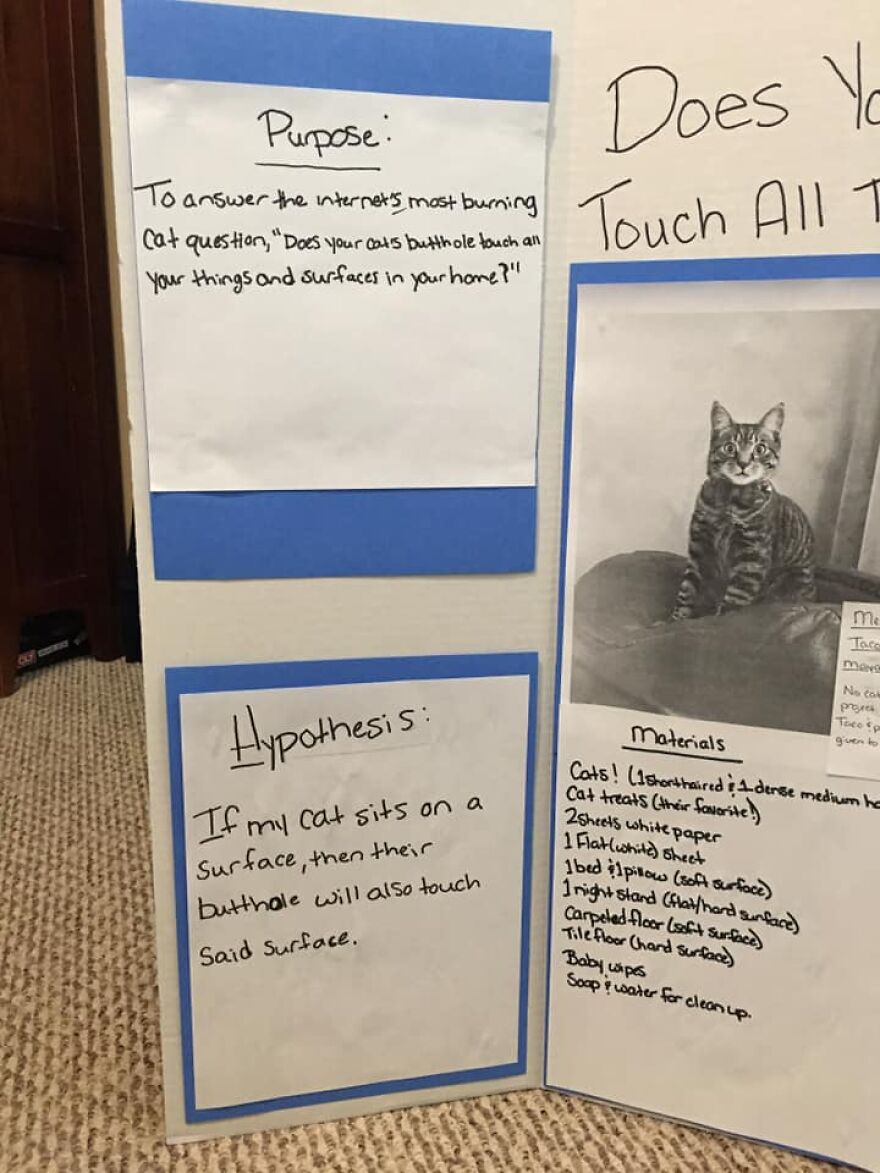 Purpose:
To answer the internet's most burning
Cat question, "Does your cats butthole touch all
your things and surfaces in your home?"
Hypothesis:
If my cat sits on a
surface, then their
butthole will also touch
said surface.
Does Yo
Touch All T
Me
Taco
No cat
project.
Taco & p
given to
Materials
Cats! (1 shorthaired & 1 dense medium ha
Cat treats (their favorite!)
2 sheets white paper
1 Flat (white) sheet
1 bed & 1 pillow (soft surface)
1 night stand (flat/hard surface)
Carpeted floor (soft surface)
Tile floor (hard surface)
Baby wipes
Soap & water for clean up.